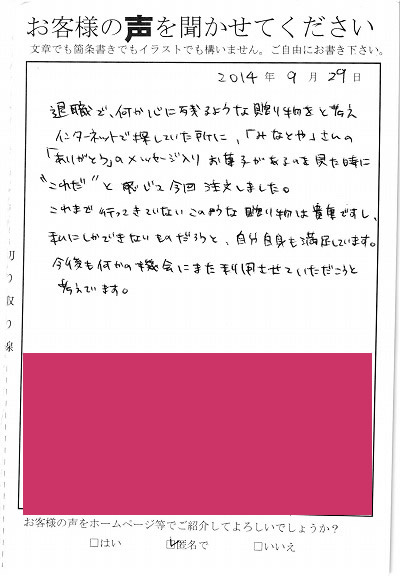 お客様の声を聞かせてください
文章でも箇条書きでもイラストでも構いません。ご自由にお書き下さい。
2014年 9月 29日
退職で、何か心に残るような贈り物をと考え
インターネットで探していた所に、「みなとや」さんの
「ありがとう」のメッセージ入りお菓子があるのを見た時に
"これだ"と感じて今回注文しました。
これまで行ってきていないこのような贈り物は貴重ですし、
私にしかできないものだろうと、自分自身も満足しています。
今後も何かの機会にまた利用させていただこうと
考えています。
切り取り線
お客様の声をホームページ等でご紹介してよろしいでしょうか？
□はい ☑匿名で □いいえ